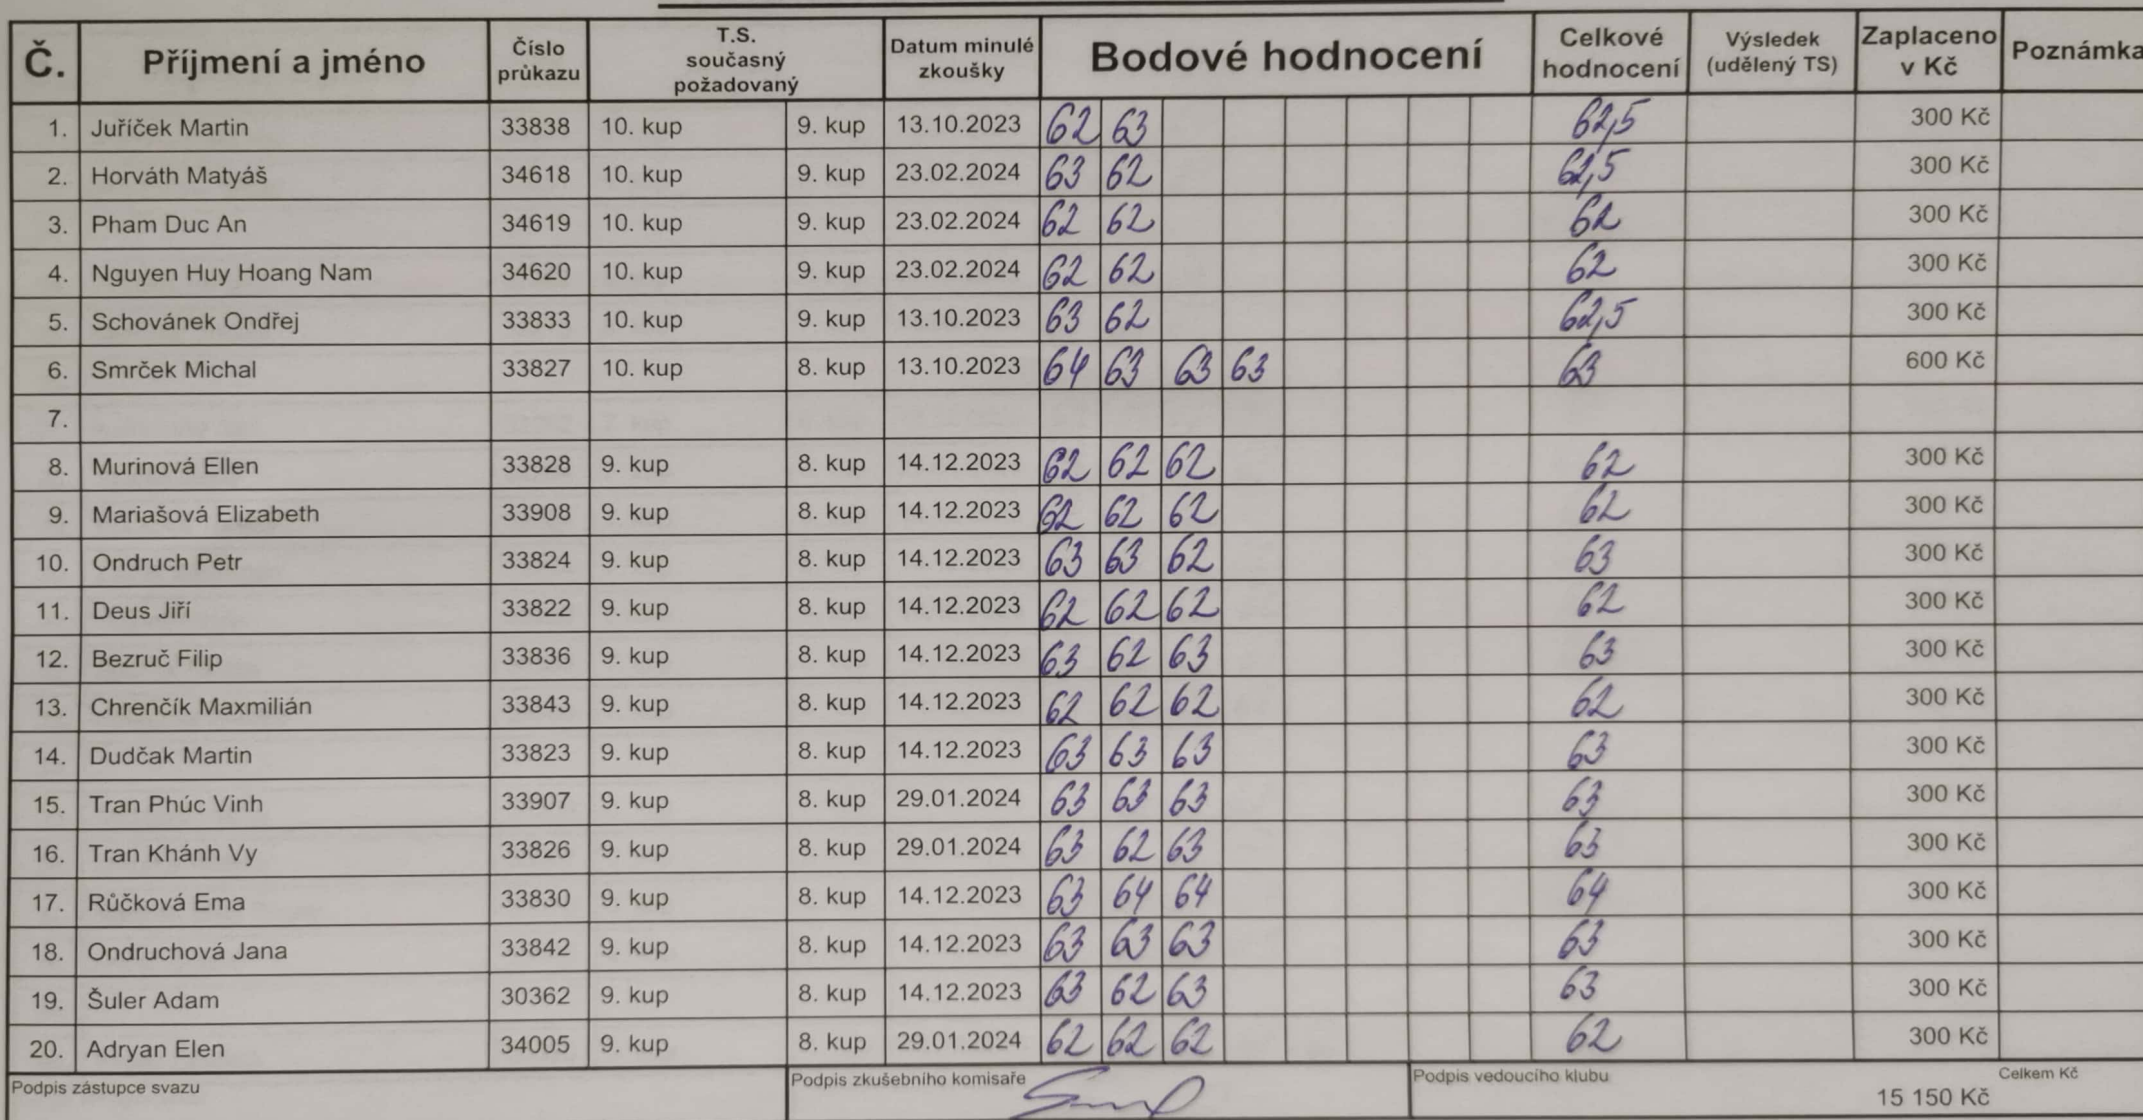 Č. Příjmení a jméno Číslo průkazu T.S. současný požadovaný Datum minulé zkoušky Bodové hodnocení Celkové hodnocení Výsledek (udělený TS) Zaplaceno v Kč Poznámka
1. Juříček Martin 33838 10. kup 9. kup 13.10.2023 62 63 62,5 300 Kč
2. Horváth Matyáš 34618 10. kup 9. kup 23.02.2024 63 62 62,5 300 Kč
3. Pham Duc An 34619 10. kup 9. kup 23.02.2024 62 62 62 300 Kč
4. Nguyen Huy Hoang Nam 34620 10. kup 9. kup 23.02.2024 62 62 62 300 Kč
5. Schovánek Ondřej 33833 10. kup 9. kup 13.10.2023 63 62 62,5 300 Kč
6. Smrček Michal 33827 10. kup 8. kup 13.10.2023 64 63 63 63 63 600 Kč
7.
8. Murinová Ellen 33828 9. kup 8. kup 14.12.2023 62 62 62 62 300 Kč
9. Mariašová Elizabeth 33908 9. kup 8. kup 14.12.2023 62 62 62 62 300 Kč
10. Ondruch Petr 33824 9. kup 8. kup 14.12.2023 63 63 62 63 300 Kč
11. Deus Jiří 33822 9. kup 8. kup 14.12.2023 62 62 62 62 300 Kč
12. Bezruč Filip 33836 9. kup 8. kup 14.12.2023 63 62 63 63 300 Kč
13. Chrenčík Maxmilián 33843 9. kup 8. kup 14.12.2023 62 62 62 62 300 Kč
14. Dudčak Martin 33823 9. kup 8. kup 14.12.2023 63 63 63 63 300 Kč
15. Tran Phúc Vinh 33907 9. kup 8. kup 29.01.2024 63 63 63 63 300 Kč
16. Tran Khánh Vy 33826 9. kup 8. kup 29.01.2024 63 62 63 63 300 Kč
17. Růčková Ema 33830 9. kup 8. kup 14.12.2023 63 64 64 64 300 Kč
18. Ondruchová Jana 33842 9. kup 8. kup 14.12.2023 63 63 63 63 300 Kč
19. Šuler Adam 30362 9. kup 8. kup 14.12.2023 63 62 63 63 300 Kč
20. Adryan Elen 34005 9. kup 8. kup 29.01.2024 62 62 62 62 300 Kč
Podpis zástupce svazu Podpis zkušebního komisaře Podpis vedoucího klubu Celkem Kč
15 150 Kč